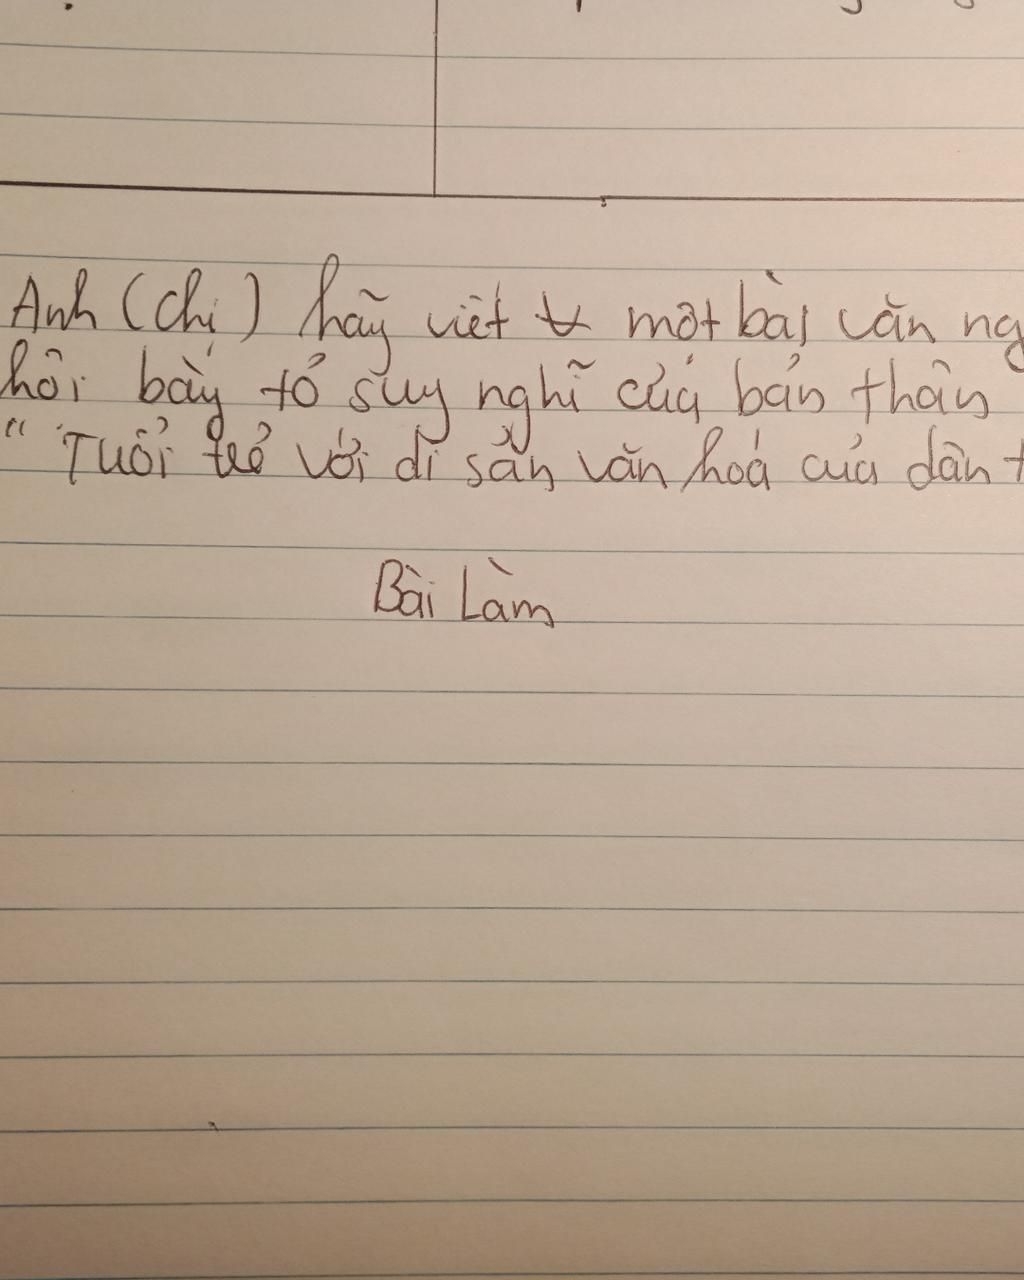 Anh (chị) hãy viết một bài văn ng
hội bày tỏ suy nghĩ của bản thân
"Tuổi trẻ với di sản văn hoá của dân t
Bài Làm